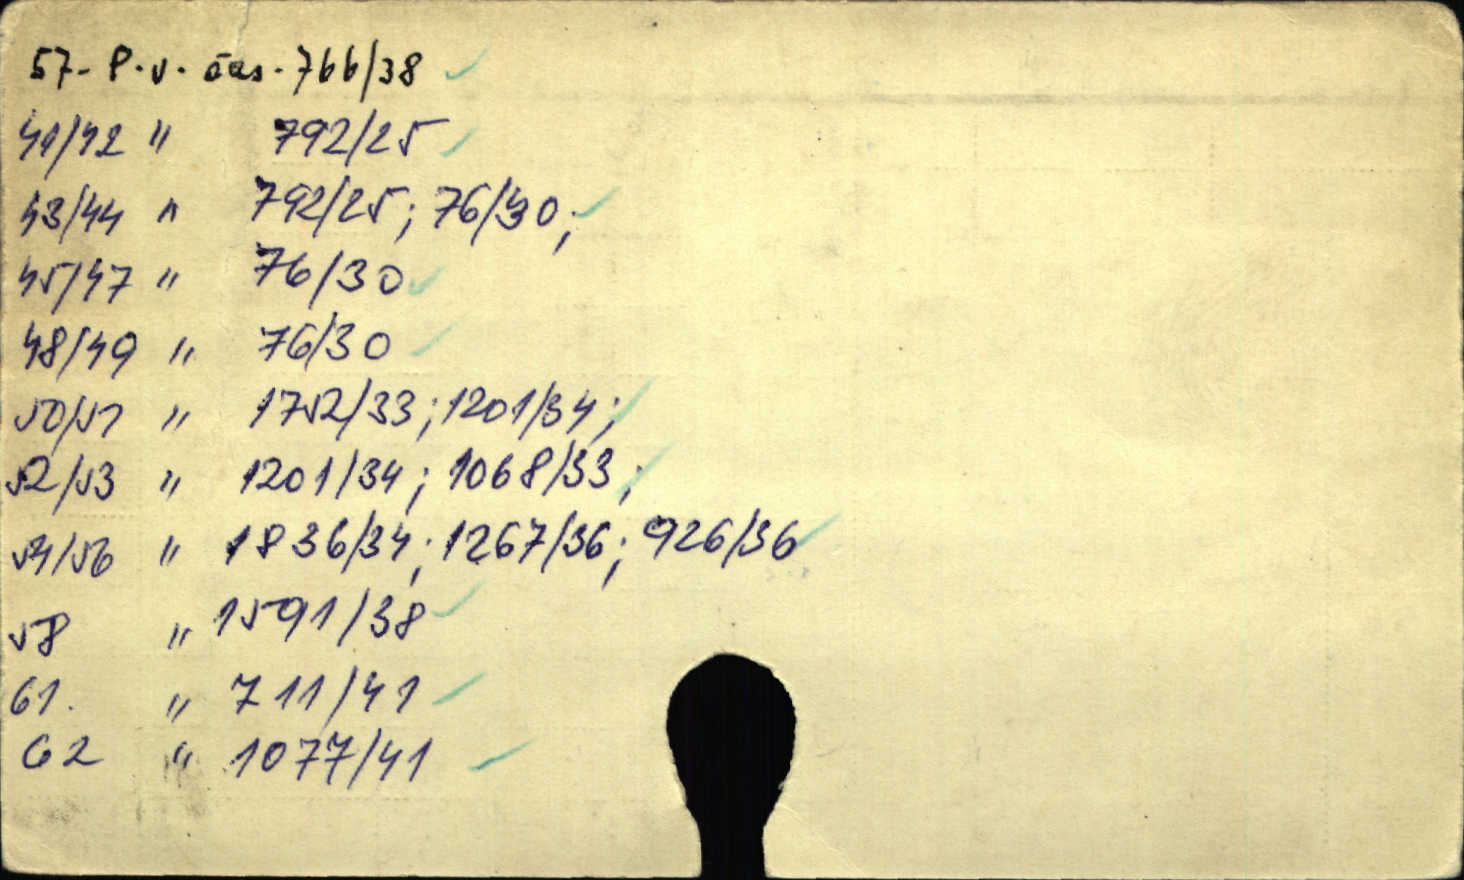 57- P. v. čas. 766/38
41/42 " 792/25
43/44 " 792/25; 76/30;
45/47 " 76/30
48/49 " 76/30
50/51 " 1752/33; 1201/34;
52/53 " 1201/34; 1068/33;
54/56 " 1836/34; 1267/36; 926/36
58 " 1591/38
61. " 711/41
62 " 1077/41